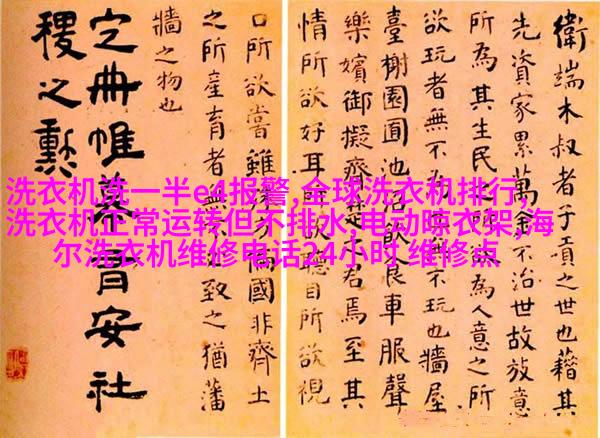 衛端木叔者子貢之世也藉其
先資家累萬金不治世故放意
所為其生民之所欲為人意之所
欲玩者無不為也無不玩也牆屋
臺榭園囿池沼飲食車服聲
樂嬪御擬齊楚之君焉至其
情所欲好耳所欲聽目所欲視
口所欲嘗雖殊方偏國非齊土
之所產育者無不必致之猶藩
牆之物也
定冊帷幕有安社
稷之勳
洗衣机洗一半e4报警,全球洗衣机排行,
洗衣机正常运转但不排水,电动晾衣架,海
尔洗衣机维修电话24小时 维修点